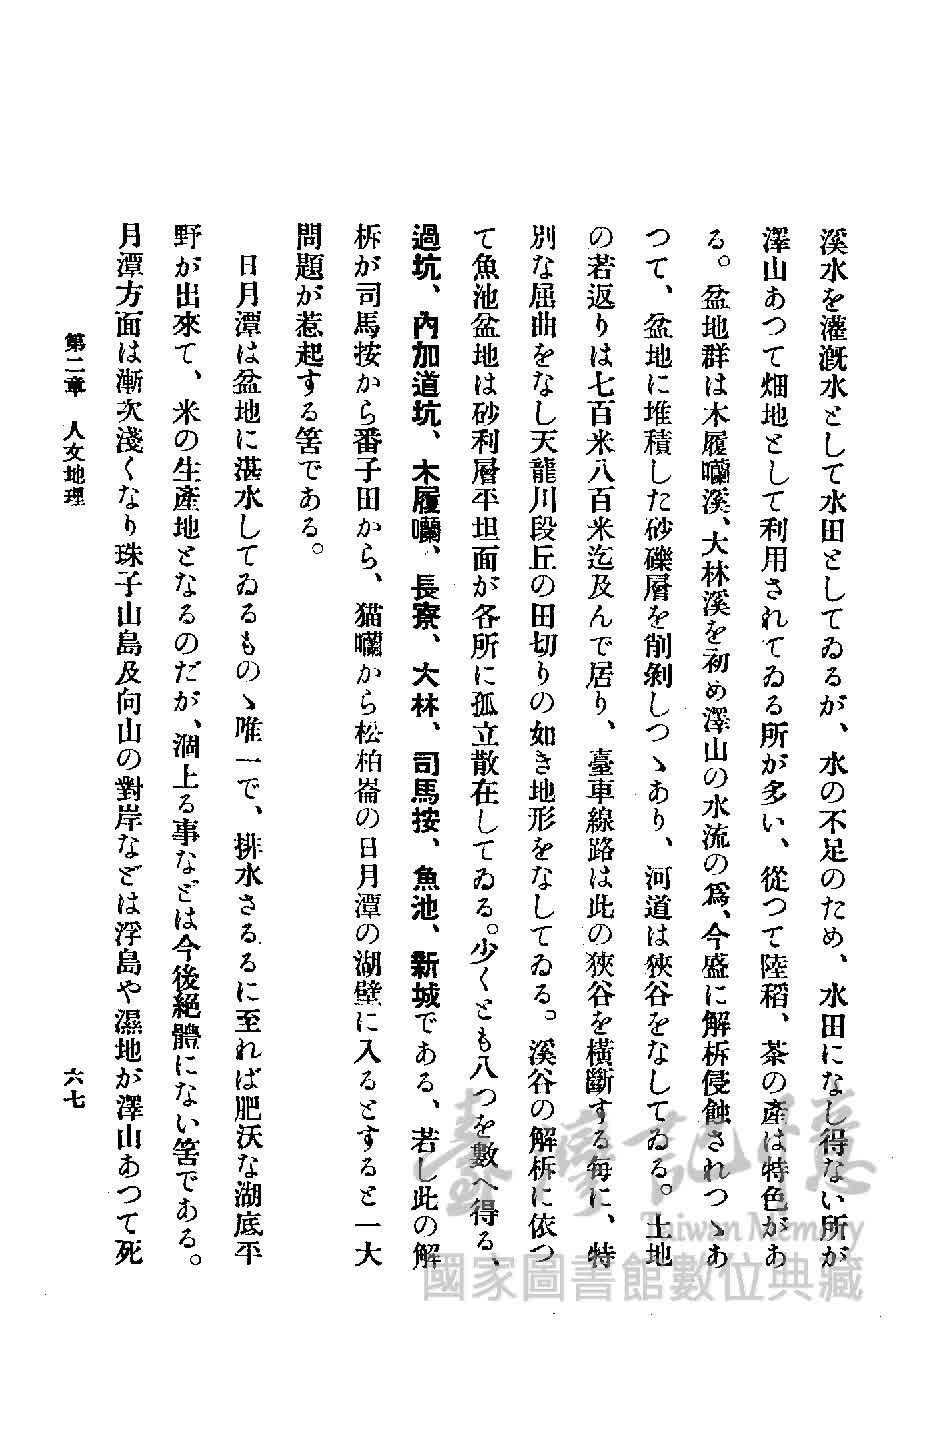 溪水を灌漑水として水田としてゐるが、水の不足のため、水田になし得ない所が
澤山あつて畑地として利用されてゐる所が多い、從つて陸稻、茶の產は特色があ
る。盆地群は木履囒溪、大林溪を初め澤山の水流の爲、今盛に解柝侵蝕されつゝあ
つて、盆地に堆積した砂礫層を削剝しつゝあり、河道は狹谷をなしてゐる。土地
の若返りは七百米八百米迄及んで居り、臺車線路は此の狹谷を橫斷する每に、特
別な屈曲をなし天龍川段丘の田切りの如き地形をなしてゐる。溪谷の解柝に依つ
て魚池盆地は砂利層平坦面が各所に孤立散在してゐる。少くとも八つを數へ得る、
過坑、內加道坑、木履囒、長寮、大林、司馬按、魚池、新城である、若し此の解
柝が司馬按から番子田から、猫囒から松柏崙の日月潭の湖壁に入るとすると一大
問題が惹起する筈である。
日月潭は盆地に湛水してゐるものゝ唯一で、排水さるるに至れば肥沃な湖底平
野が出來て、米の生產地となるのだが、涸上る事などは今後絕體にない筈である。
月潭方面は漸次淺くなり珠子山島及向山の對岸などは浮島や濕地が澤山あつて死
第二章 人文地理
六七
臺灣記憶
Taiwan Memory
國家圖書館數位典藏